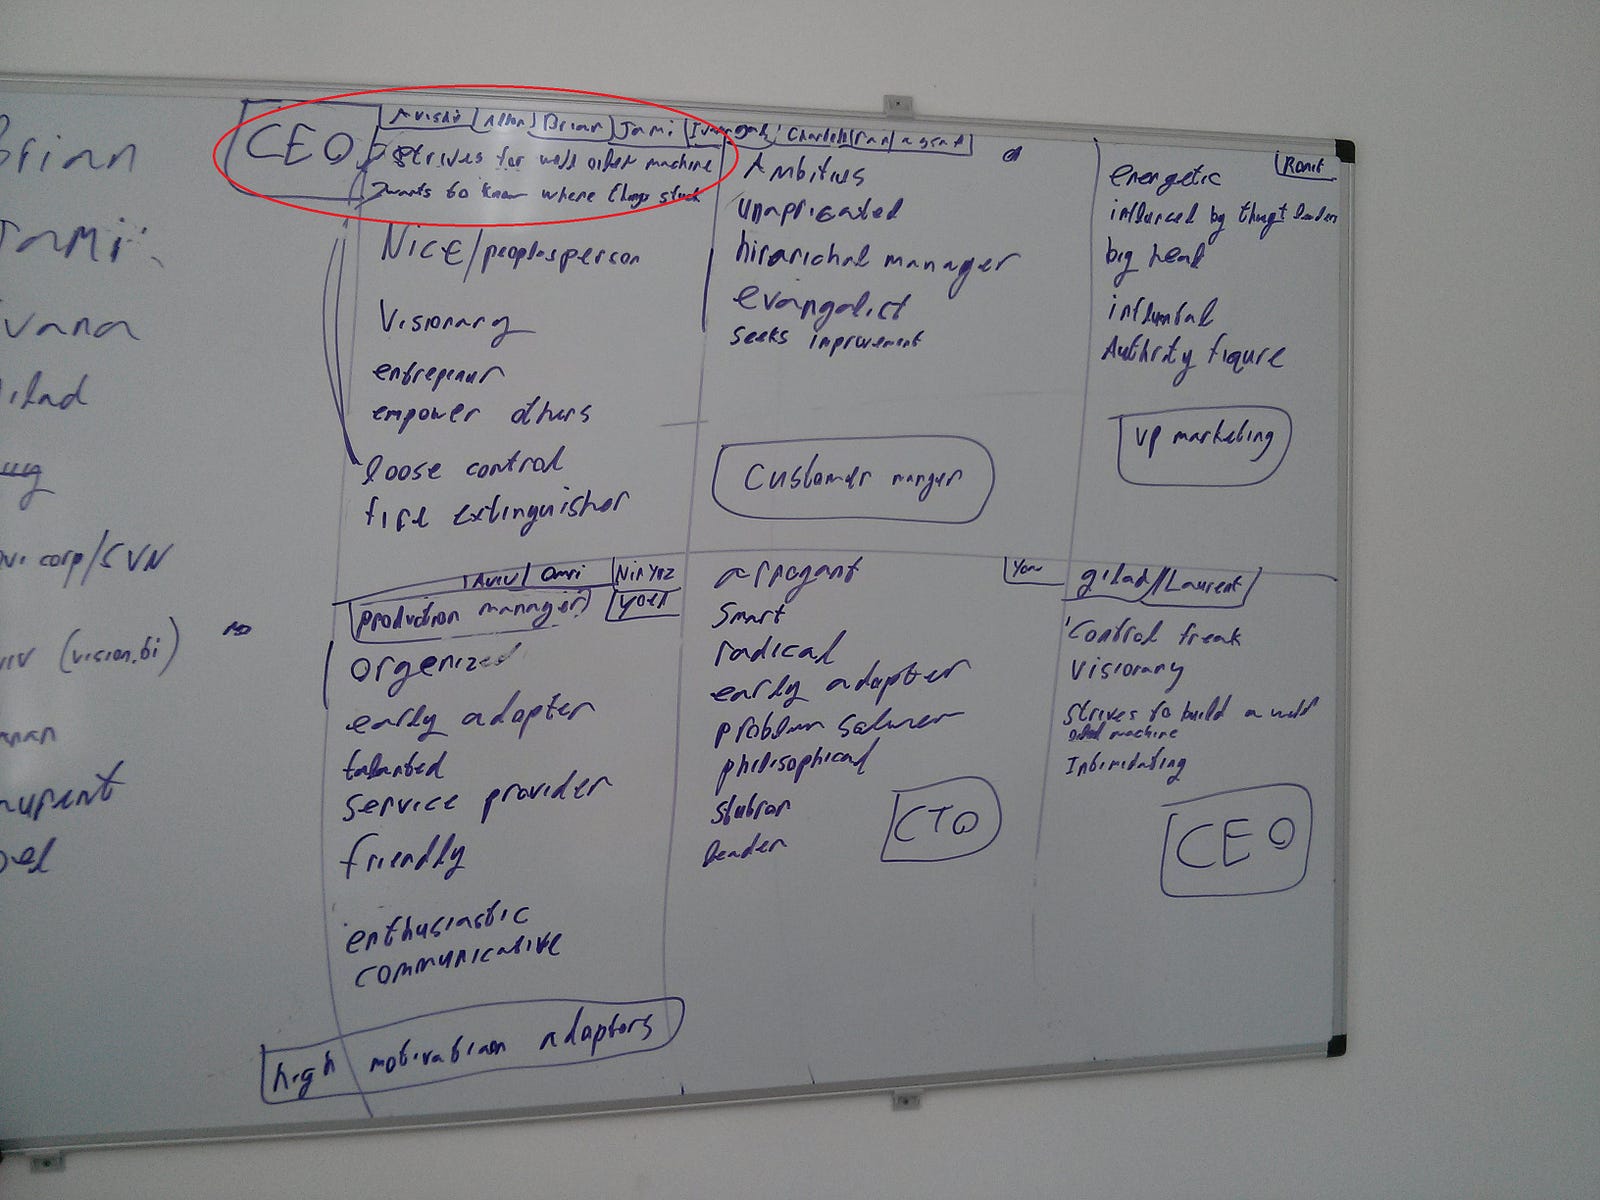 Brian
Jami
vana
ilad
corp/SVN
(vision.bi)
CEO
Brian Jami
Strives for well oiled machine
wants to know where things stuck
Nice/peoplesperson
Visionary
entrepenur
empower others
loose control
fire extinguisher
Ambitius
unapriciated
hirarichal manager
evangalist
seeks improvement
Customer manger
Ronit
energetic
influnced by thugt leaders
big head
influntial
Authrity figure
VP marketing
Aviv Omri Nir Yoz
production manager Yoel
orgenized
early adopter
talanted
service provider
friendly
enthusiastic
communicative
high motivation adaptors
arrogant
smart
radical
early adapter
problem salver
philisophical
stubron
leader
CTO
gilad Laurent
Control freak
visionary
strives to build a well
oiled machine
Intimidating
CEO